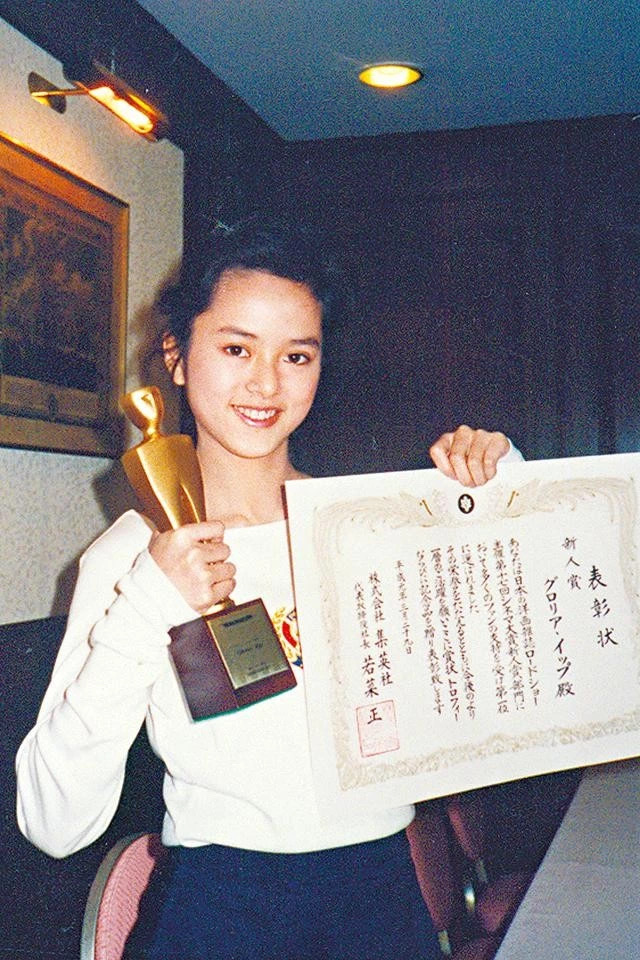 表彰状
新人賞
グロリア・イップ殿
あなたは日本の洋画雑誌ロードショー
主催第十七回シネマ大賞新人賞部門に
おいて多くのファンの支持を受け第一位
に選ばれました
その栄誉をたたえるとともに今後のより
一層のご活躍を願いここに賞状トロフィー
ならびに記念品を贈り表彰致します
株式会社 集英社
代表取締役社長 若菜 正